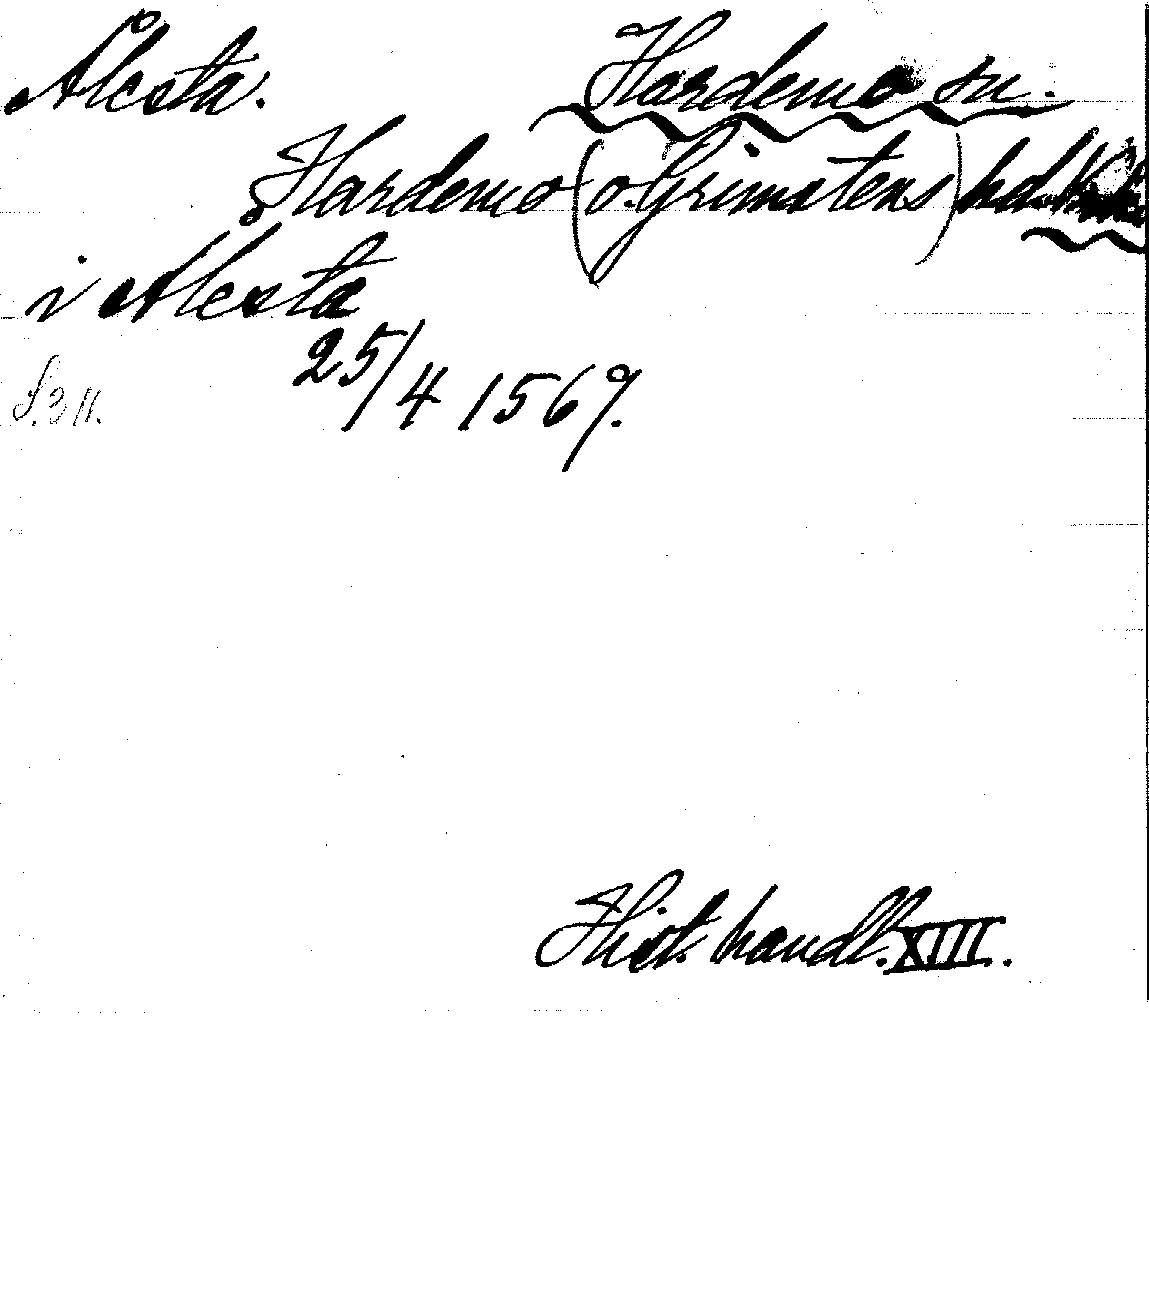 Ålesta. Hardemo sn.
Hardemo (o. Grimstens) hd.
i Ålesta
25/4 1569.
S. 311.
Hist. handl. XIII.